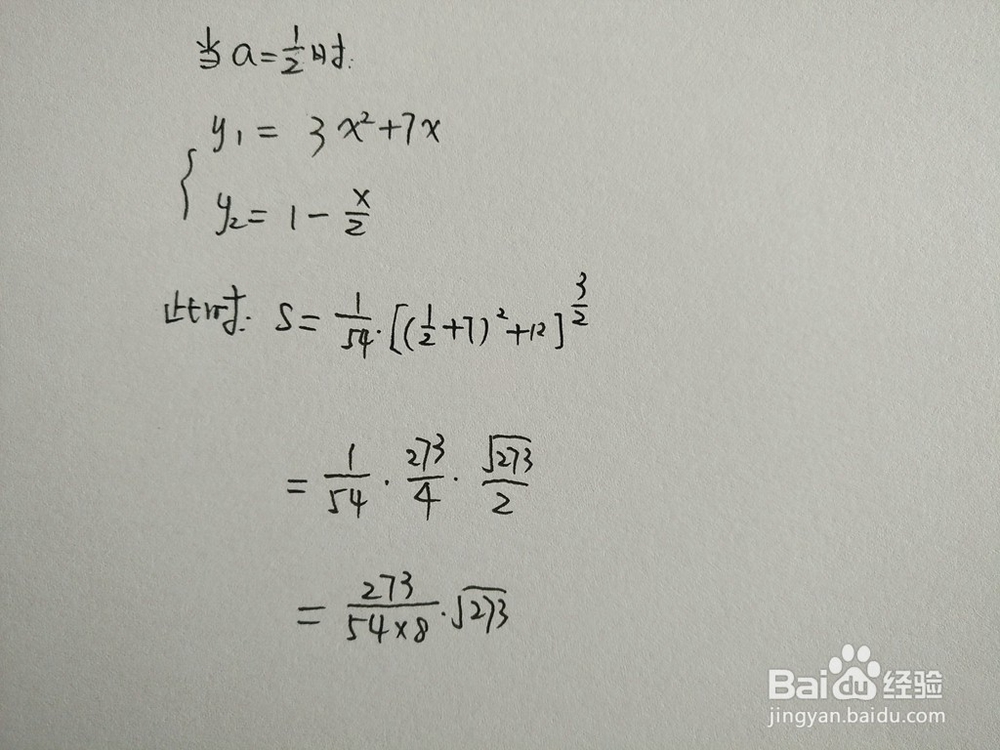 当 a=1/2 时:
y₁ = 3x²+7x
y₂ = 1 - x/2
此时: S = 1/54·[(1/2+7)²+12]^(3/2)
= 1/54 · 273/4 · √273/2
= 273/(54×8) · √273
Baidu 经验
jingyan.baidu.com